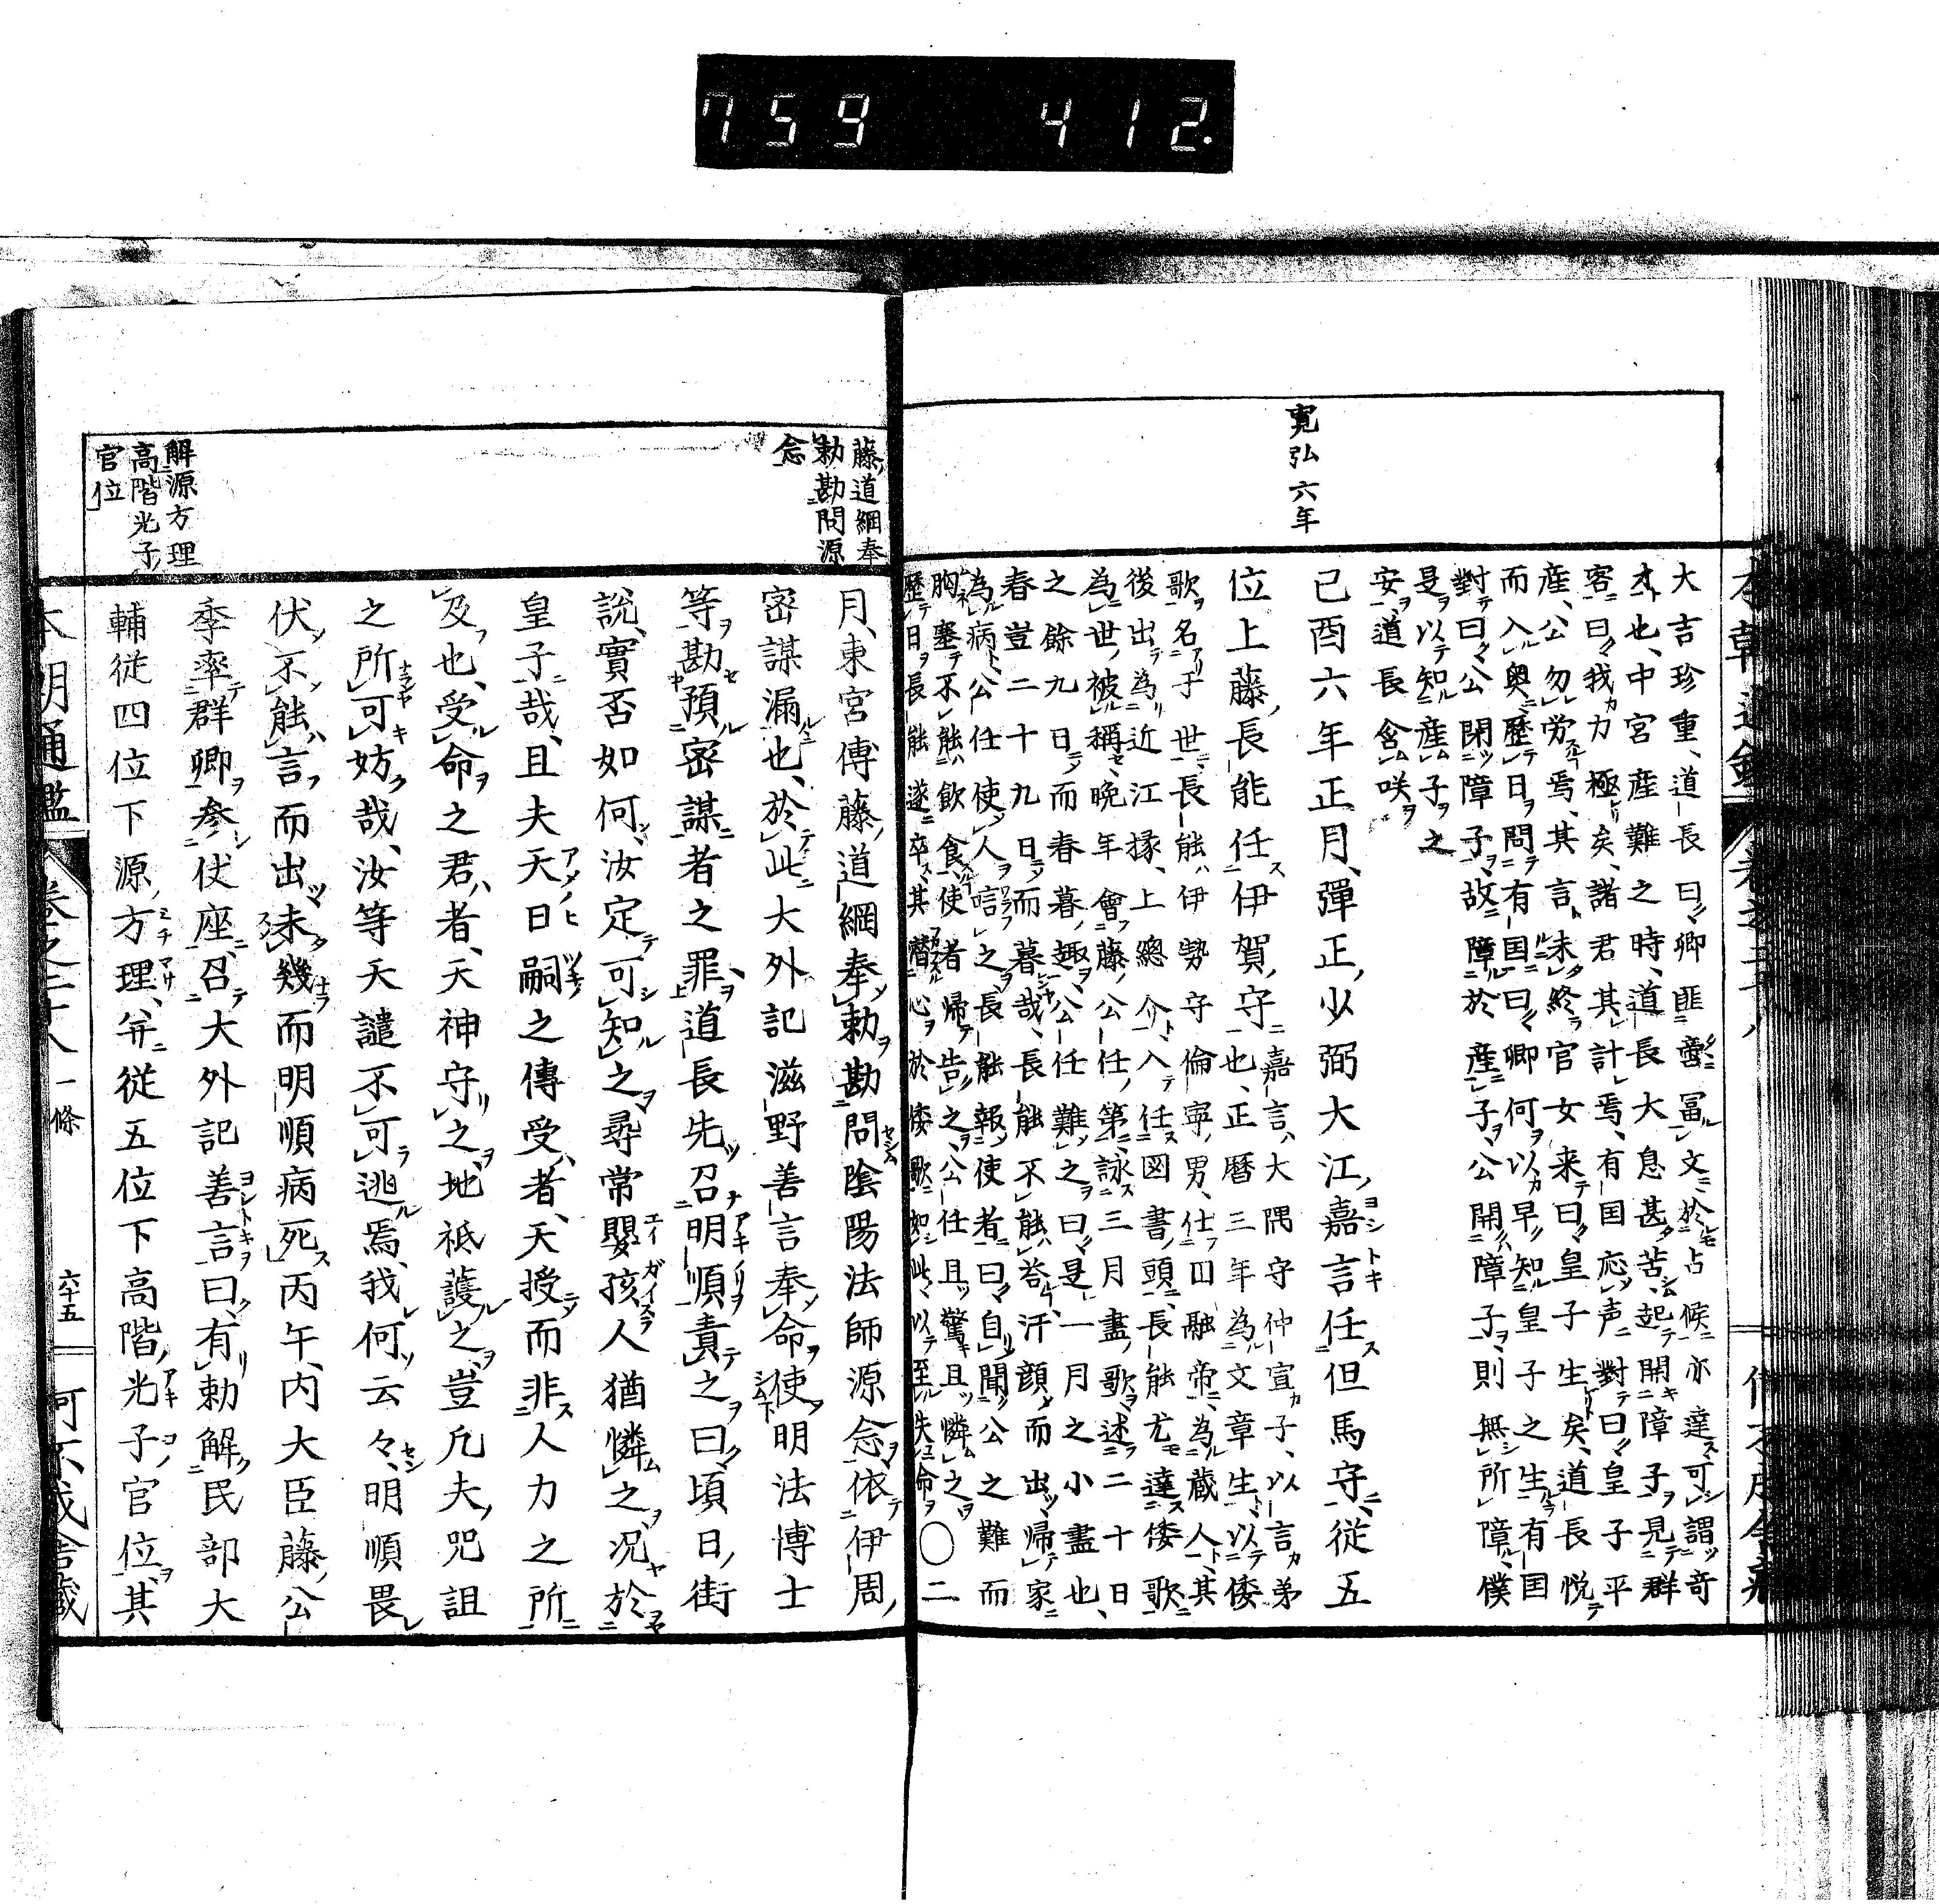 759 412.
寛弘六年
大吉珍重、道長曰卿匪啻冨文於占候亦達可謂竒
才也、中宮産難之時、道長大息甚苦、起開障子見群
客曰我力極矣、諸君其計焉、有国応声對曰皇子平
産、公勿労焉、其言未終官女来曰皇子生矣、道長悦
而入奥歴日問有国曰卿何以早知皇子之生有国
對曰公閉障子故障於産子公開障子則無所障僕
是以知産子之
安、道長含咲
己酉六年正月、彈正少弼大江嘉言任但馬守、從五
位上藤長能任伊賀守
嘉言、大隅守仲宣子、以言弟
也、正暦三年為文章生以倭
歌名于世、長能伊勢守倫寧男、仕円融帝為蔵人、其
後出為近江掾、上總介入任図書頭、長能尤達倭歌
為世被稱、晩年會藤公任第詠三月盡歌述二十日
之餘九日而春暮趣公任難之曰是一月之小盡也、
春豈二十九日而暮哉、長能不能答汗顔而出歸家
為病公任使人唁之長能報使者曰自聞公之難而
胸塞不能飲食使者歸告之公任且驚且憐之
歴日長能遂卒其潜心於倭歌如此以至失命〇二
藤道綱奉
勅勘問源
念
月、東宮傳藤道綱奉勅勘問陰陽法師源念依伊周
密謀漏也、於此大外記滋野善言奉命使明法博士
等勘預密謀者之罪道長先召明順責之曰頃日街
説、實否如何、汝定可知之尋常嬰孩人猶憐之況於
皇子哉、且夫天日嗣之傳受者、天授而非人力之所
及也、受命之君者、天神守之地祇護之豈凢夫咒詛
之所可妨哉、汝等天譴不可逃焉、我何云々、明順畏
伏不能言而出未幾而明順病死丙午、内大臣藤公
季率群卿参伏座召大外記善言曰有勅解民部大
輔從四位下源方理并從五位下高階光子官位其
解源方理
高階光子
官位
本朝通鑑 卷之二十八 一條 六十五